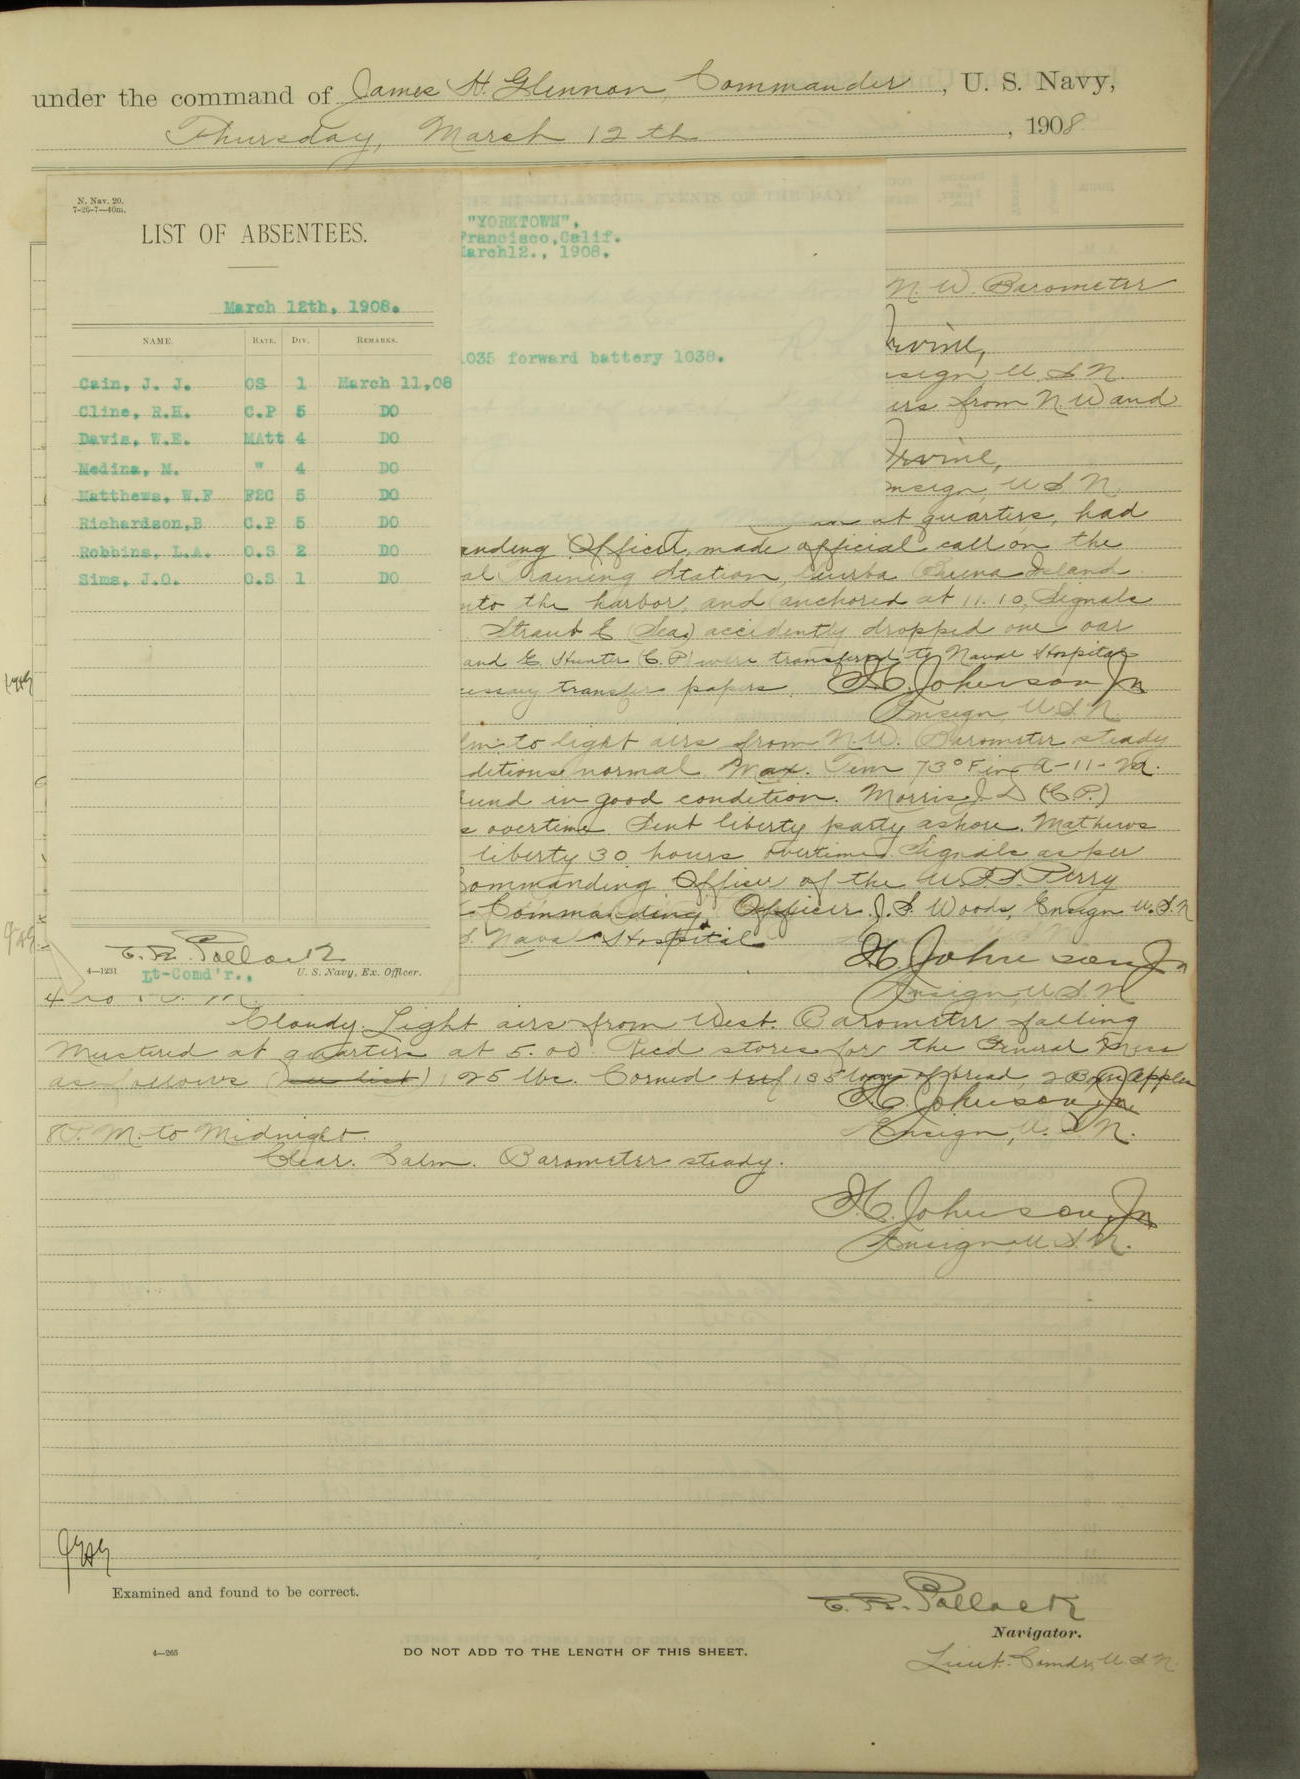 under the command of James H. Glennon, Commander, U. S. Navy,
Thursday, March 12th, 1908
N. Nav. 20.
7-26-7—40m.
LIST OF ABSENTEES.
March 12th, 1908.
NAME. RATE. DIV. REMARKS.
Cain, J. J. OS 1 March 11,08
Cline, R.H. C.P 5 DO
Davis, W.E. MAtt 4 DO
Medina, M. " 4 DO
Matthews, W.F F2C 5 DO
Richardson,B C.P 5 DO
Robbins, L.A. O.S 2 DO
Sims, J.O. O.S 1 DO
E. R. Pollock
4—1231 Lt-Comd'r., U. S. Navy, Ex. Officer.
"YORKTOWN",
Francisco,Calif.
March12., 1908.
1035 forward battery 1038.
N. W. Barometer
Irvine,
Ensign U. S. N.
airs from N. W and
Irvine,
Ensign, U. S. N.
at quarters, had
anding Officer, made official call on the
al Training Station, Buena Island
nto the harbor, and anchored at 11.10, Signals
Straub E (Sea) accidently dropped one oar
and E. Hunter (C.P) were transferred to Naval Hospital
cessary transfer papers. H. Johnson Jr
Ensign U.S.N.
lm to light airs from N.W. Barometer steady
ditions normal Max. Tem 73° F in A-11-M.
und in good condition. Morris J. D (C.P.)
s overtime. Sent liberty party ashore. Mathews
liberty 30 hours overtime. Signals as per
Commanding Officer of the U.S.S. Perry
Commanding Officer J. S. Woods, Ensign U.S.N
S. Naval Hospital
H. Johnson Jr
Ensign, U.S.N
4 to P. M.
Cloudy. Light airs from West. Barometer falling
Mustered at quarters at 5.00. Recd stores for the General Mess
as follows (see list) 125 lbs. Corned beef, 135 loaves of bread, 2 Boxes Apples
H. Johnson Jr.
8 P. M. to Midnight. Ensign, U.S.N.
Clear. Calm. Barometer steady.
H. Johnson, Jr
Ensign U.S.N.
JHG
Examined and found to be correct.
E. R. Pollock
Navigator.
4—265 DO NOT ADD TO THE LENGTH OF THIS SHEET.
Lieut. Comdr, U.S.N.